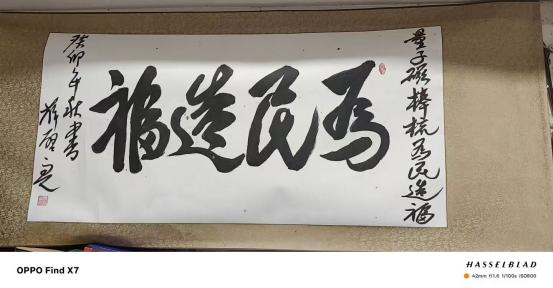 量子磁棒梳为民造福
為民造福
癸卯年秋書
OPPO Find X7
HASSELBLAD
42mm f/1.6 1/100s ISO800